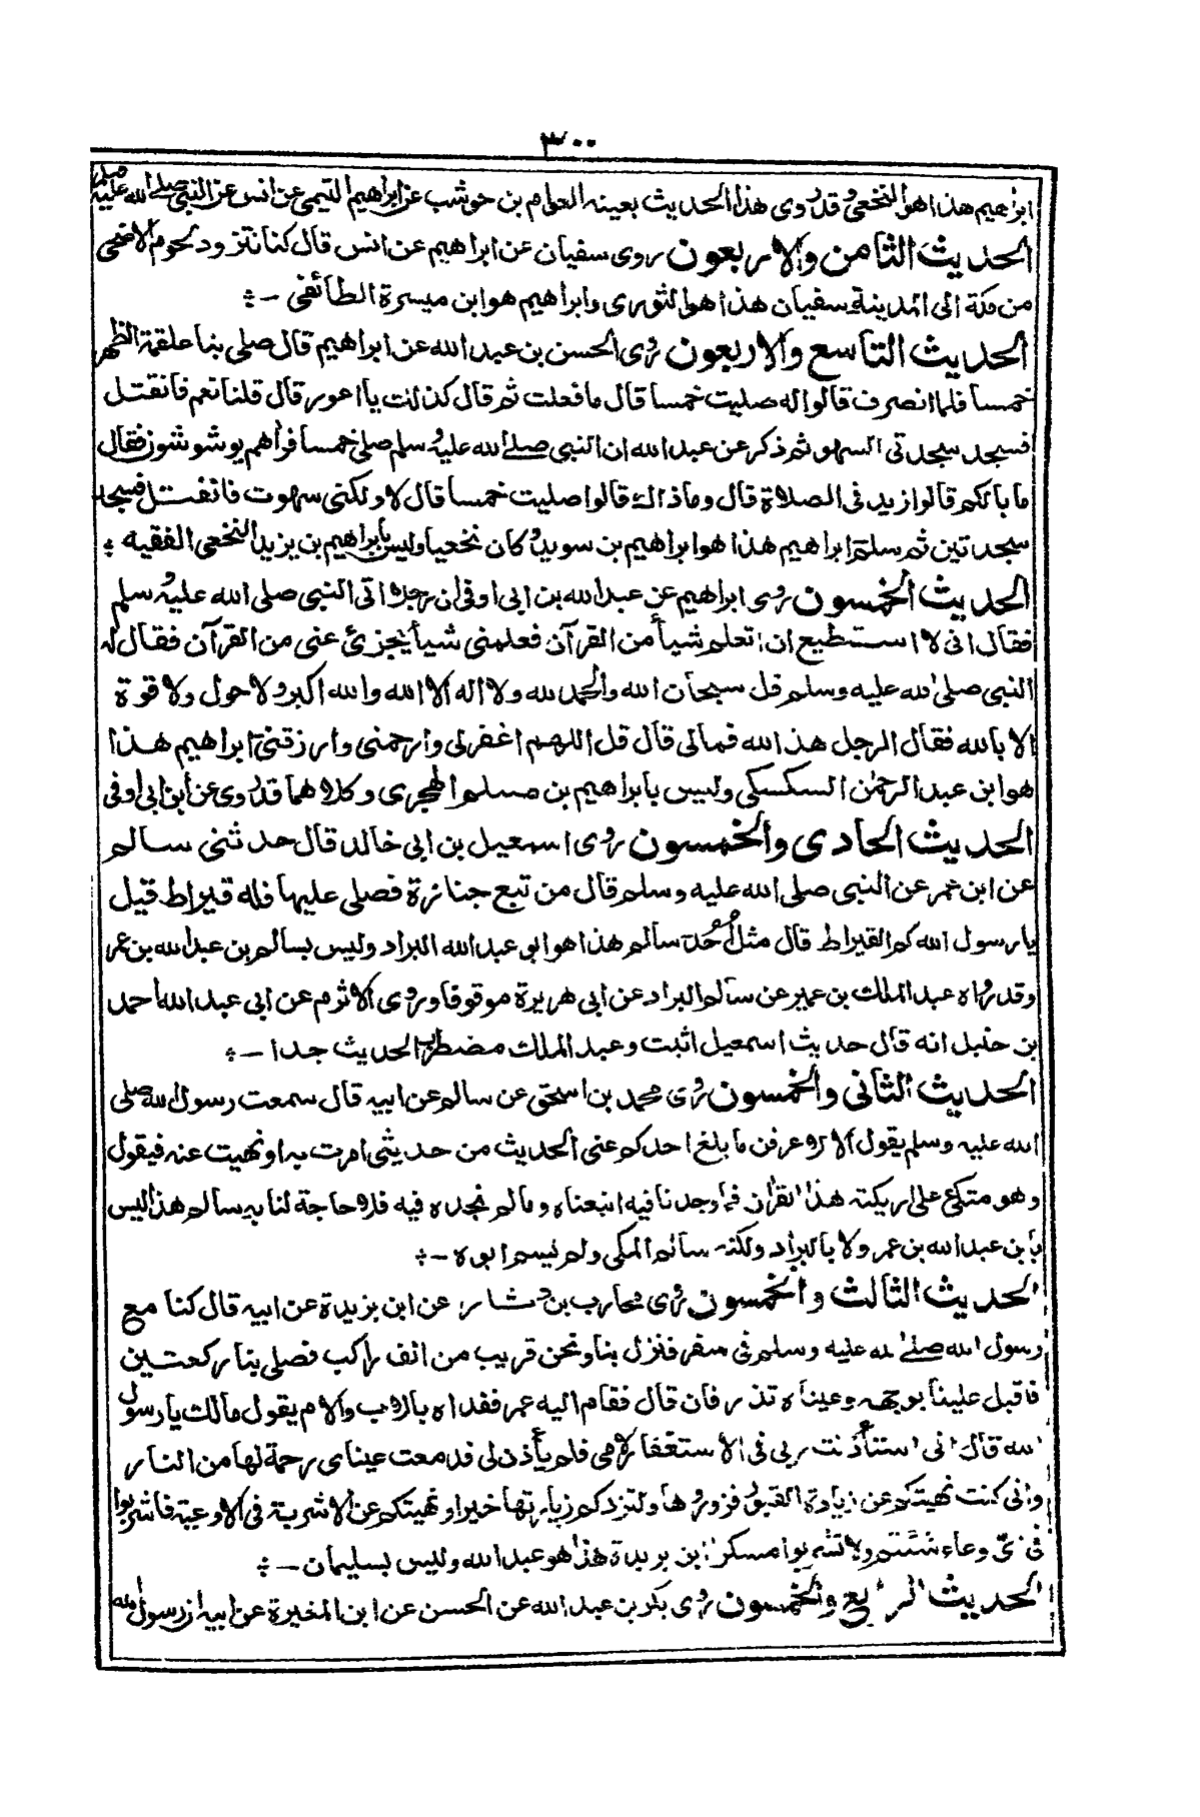 ٣٠٠
ابراهيم هذا هو النخعي وقد روى هذا الحديث بعينه العوام بن حوشب عن ابراهيم التيمى عن انس عن النبى صلى الله عليه وسلم
الحديث الثامن والاربعون روى سفيان عن ابراهيم عن انس قال كنا نتزود لحوم الاضحى
من مكة الى المدينة سفيان هذا هو الثورى وابراهيم هو ابن ميسرة الطائفى -
الحديث التاسع والاربعون روى الحسن بن عبد الله عن ابراهيم قال صلى بنا علقمة الظهر
خمسا فلما انصرف قالوا له صليت خمسا قال ما فعلت ثم قال كذلك يا اعور قال قلنا نعم فانفتل
فسجد سجدتى السهو ثم ذكر عن عبد الله ان النبى صلى الله عليه وسلم صلى خمسا فراهم يوشوشون فقال
ما بالكم قالوا زيد فى الصلاة قال وما ذاك قالوا صليت خمسا قال لا ولكنى سهوت فانفتل فسجد
سجدتين ثم سلم ابراهيم هذا هو ابراهيم بن سويد وكان نخعيا وليس بابراهيم بن يزيد النخعى الفقيه
الحديث الخمسون روى ابراهيم عن عبد الله بن ابى اوفى ان رجلا اتى النبى صلى الله عليه وسلم
فقال انى لا استطيع ان اتعلم شيأ من القرآن فعلمنى شيأ يجزئ عنى من القرآن فقال له
النبى صلى الله عليه وسلم قل سبحان الله والحمد لله ولا اله الا الله والله اكبر ولا حول ولا قوة
الا بالله فقال الرجل هذا لله فمالى قال قل اللهم اغفرلى وارحمنى وارزقنى ابراهيم هذا
هو ابن عبد الرحمن السكسكى وليس بابراهيم بن مسلم الهجرى وكلاهما قد روى عن ابن ابى اوفى
الحديث الحادى والخمسون روى اسمعيل بن ابى خالد قال حدثنى سالم
عن ابن عمر عن النبى صلى الله عليه وسلم قال من تبع جنازة فصلى عليها فله قيراط قيل
يا رسول الله كم القيراط قال مثل أحد سالم هذا هو ابو عبد الله البراد وليس بسالم بن عبد الله بن عمر
وقد رواه عبد الملك بن عمير عن سالم البراد عن ابى هريرة موقوفا وروى الاثرم عن ابى عبد الله احمد
بن حنبل انه قال حديث اسمعيل اثبت وعبد الملك مضطرب الحديث جدا -
الحديث الثانى والخمسون روى محمد بن اسحق عن سالم عن ابيه قال سمعت رسول الله صلى
الله عليه وسلم يقول الا لا اعرفن ما بلغ احدكم عنى الحديث من حديثى امرت به او نهيت عنه فيقول
وهو متكئ على اريكته هذا القرآن فما وجدنا فيه اتبعناه وما لم نجده فيه فلا حاجة لنا به سالم هذا ليس
بابن عبد الله بن عمر ولا بالبراد ولكنه سالم المكى ولم يسم ابوه -
الحديث الثالث والخمسون روى محارب بن دثار عن ابن بريدة عن ابيه قال كنا مع
رسول الله صلى الله عليه وسلم فى سفر فنزل بنا ونحن قريب من الف راكب فصلى بنا ركعتين
فاقبل علينا بوجهه وعيناه تذرفان قال فقام اليه عمر ففداه بالاب والام يقول مالك يا رسول
الله قال انى استأذنت ربى فى الاستغفار لامى فلم يأذن لى فدمعت عيناى رحمة لها من النار
وانى كنت نهيتكم عن زيادة القبور فزوروها ولتزدكم زيارتها خيرا ونهيتكم عن الاشربة فى الاوعية فاشربوا
فى اى وعاء شئتم ولا تشربوا مسكرا ابن بريدة هذا هو عبد الله وليس بسليمان -
الحديث الرابع والخمسون روى بكر بن عبد الله عن الحسن عن ابن المغيرة عن ابيه ان رسول الله